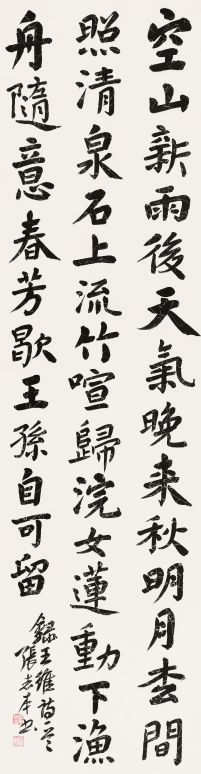 空山新雨後天氣晚来秋明月枩間
照清泉石上流竹喧歸浣女蓮動下漁
舟隨意春芳歇王孫自可留
錄王維詩
張